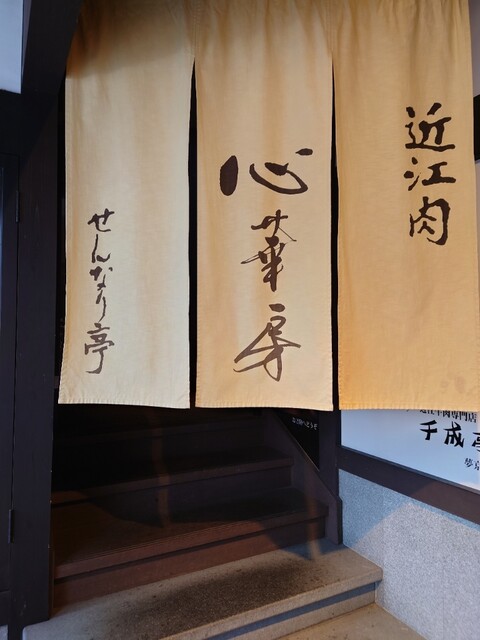 近江肉
心華房
せんなり亭
近江牛肉専門店
千成亭